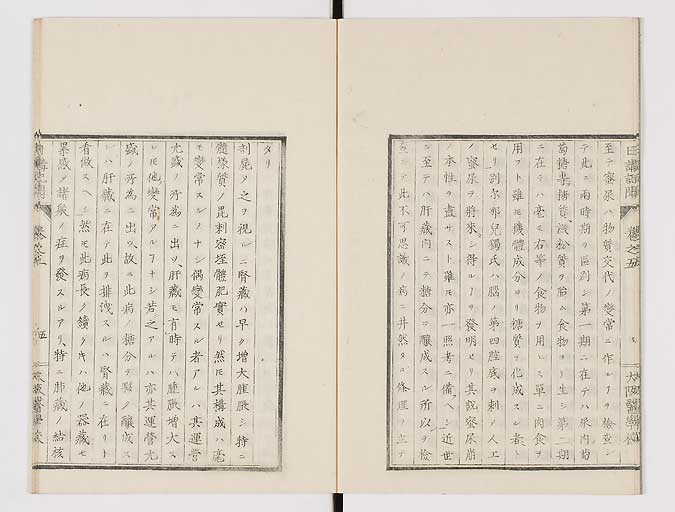 至テ蜜尿ハ物質交代ノ變常ニ作ルヿヲ檢査シ
テ此ニ兩時期ヲ區別シ第一期ニ在テハ果肉葡
萄糖糖質澱粉質ヲ胎ム食物ヨリ生シ第二期
ニ在テハ毫モ右等ノ食物ヲ用ヒス單ニ肉食ヲ
用フト雖モ機體成分ヨリ糖質ヲ化成スル者ト
セリ別尓那兒獨氏ハ腦ノ第四腔底ヲ刺ノ人工
ノ蜜尿ヲ將來シ得ルヿヲ發明セリ其説蜜尿崩
ノ本性ヲ盡サスト雖モ亦一照考ニ備ヘシ近世
ニ至テハ肝臓内ニテ糖分ヲ釀成スル所以ヲ檢
シテ此不可思議ノ病ニ井然タル條理ヲ立テ
日講記聞 卷之五
大阪醫學校
タリ
剖屍ノ之ヲ視ルニ腎臓ハ早ク増大腫脹シ特ニ
體様質ノ毘剌密垤體肥實セリ然モ其構成ハ毫
モ變常スルヿナシ偶變常スル者アルハ其運營
亢盛ノ所為ニ出ツ肝臓モ有時テハ腫脹増大ス
レモ他變常アルヿナシ若之アルハ亦其運營亢
盛ノ所為ニ出ツ故ニ此病ノ糖分ヲ夥ノ釀成ス
ルハ肝臓ニ在テ此ヲ排洩スルハ腎臓ニ在リト
看做スヘシ然モ此病長ク續クキハ他ノ器臓モ
累感ノ諸般ノ症ヲ發スルアリ特ニ肺臓ノ結核
日講記聞 卷之五 五
大阪醫學校